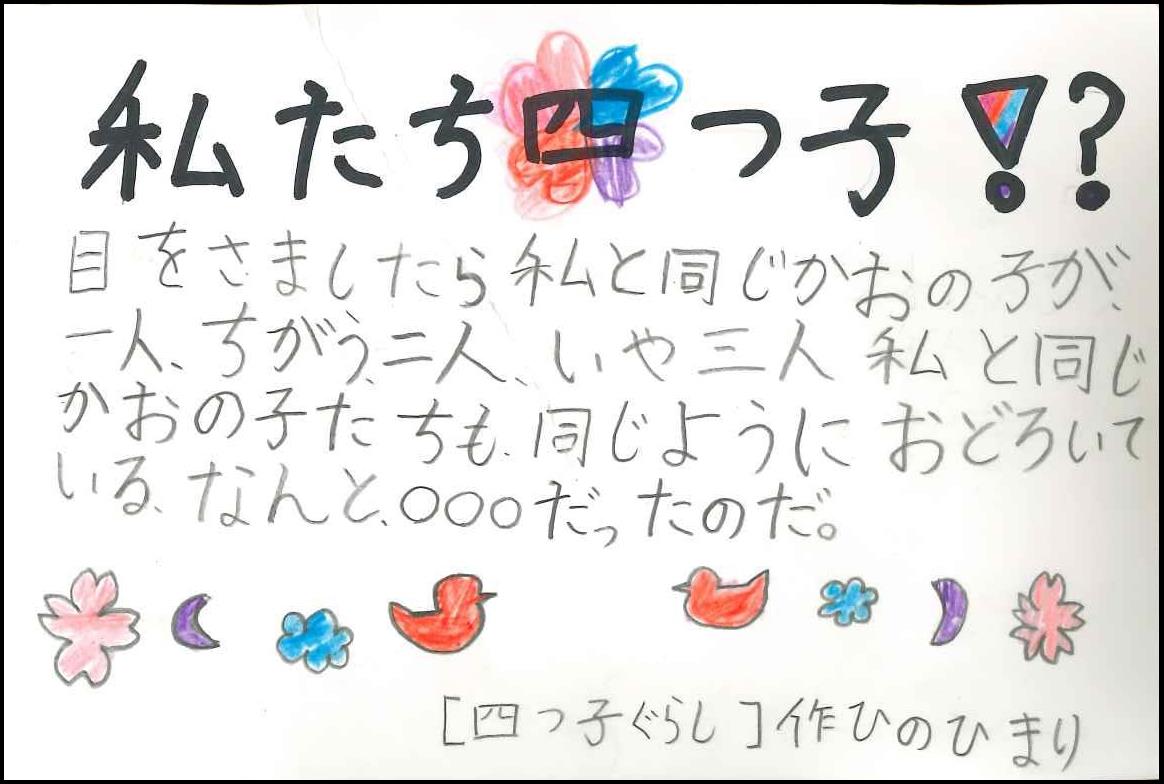 私たち四つ子!?
目をさましたら私と同じかおの子が、
一人、ちがう、二人、いや三人 私と同じ
かおの子たちも、同じようにおどろいて
いる、なんと、〇〇〇だったのだ。
[四つ子ぐらし]作ひのひまり